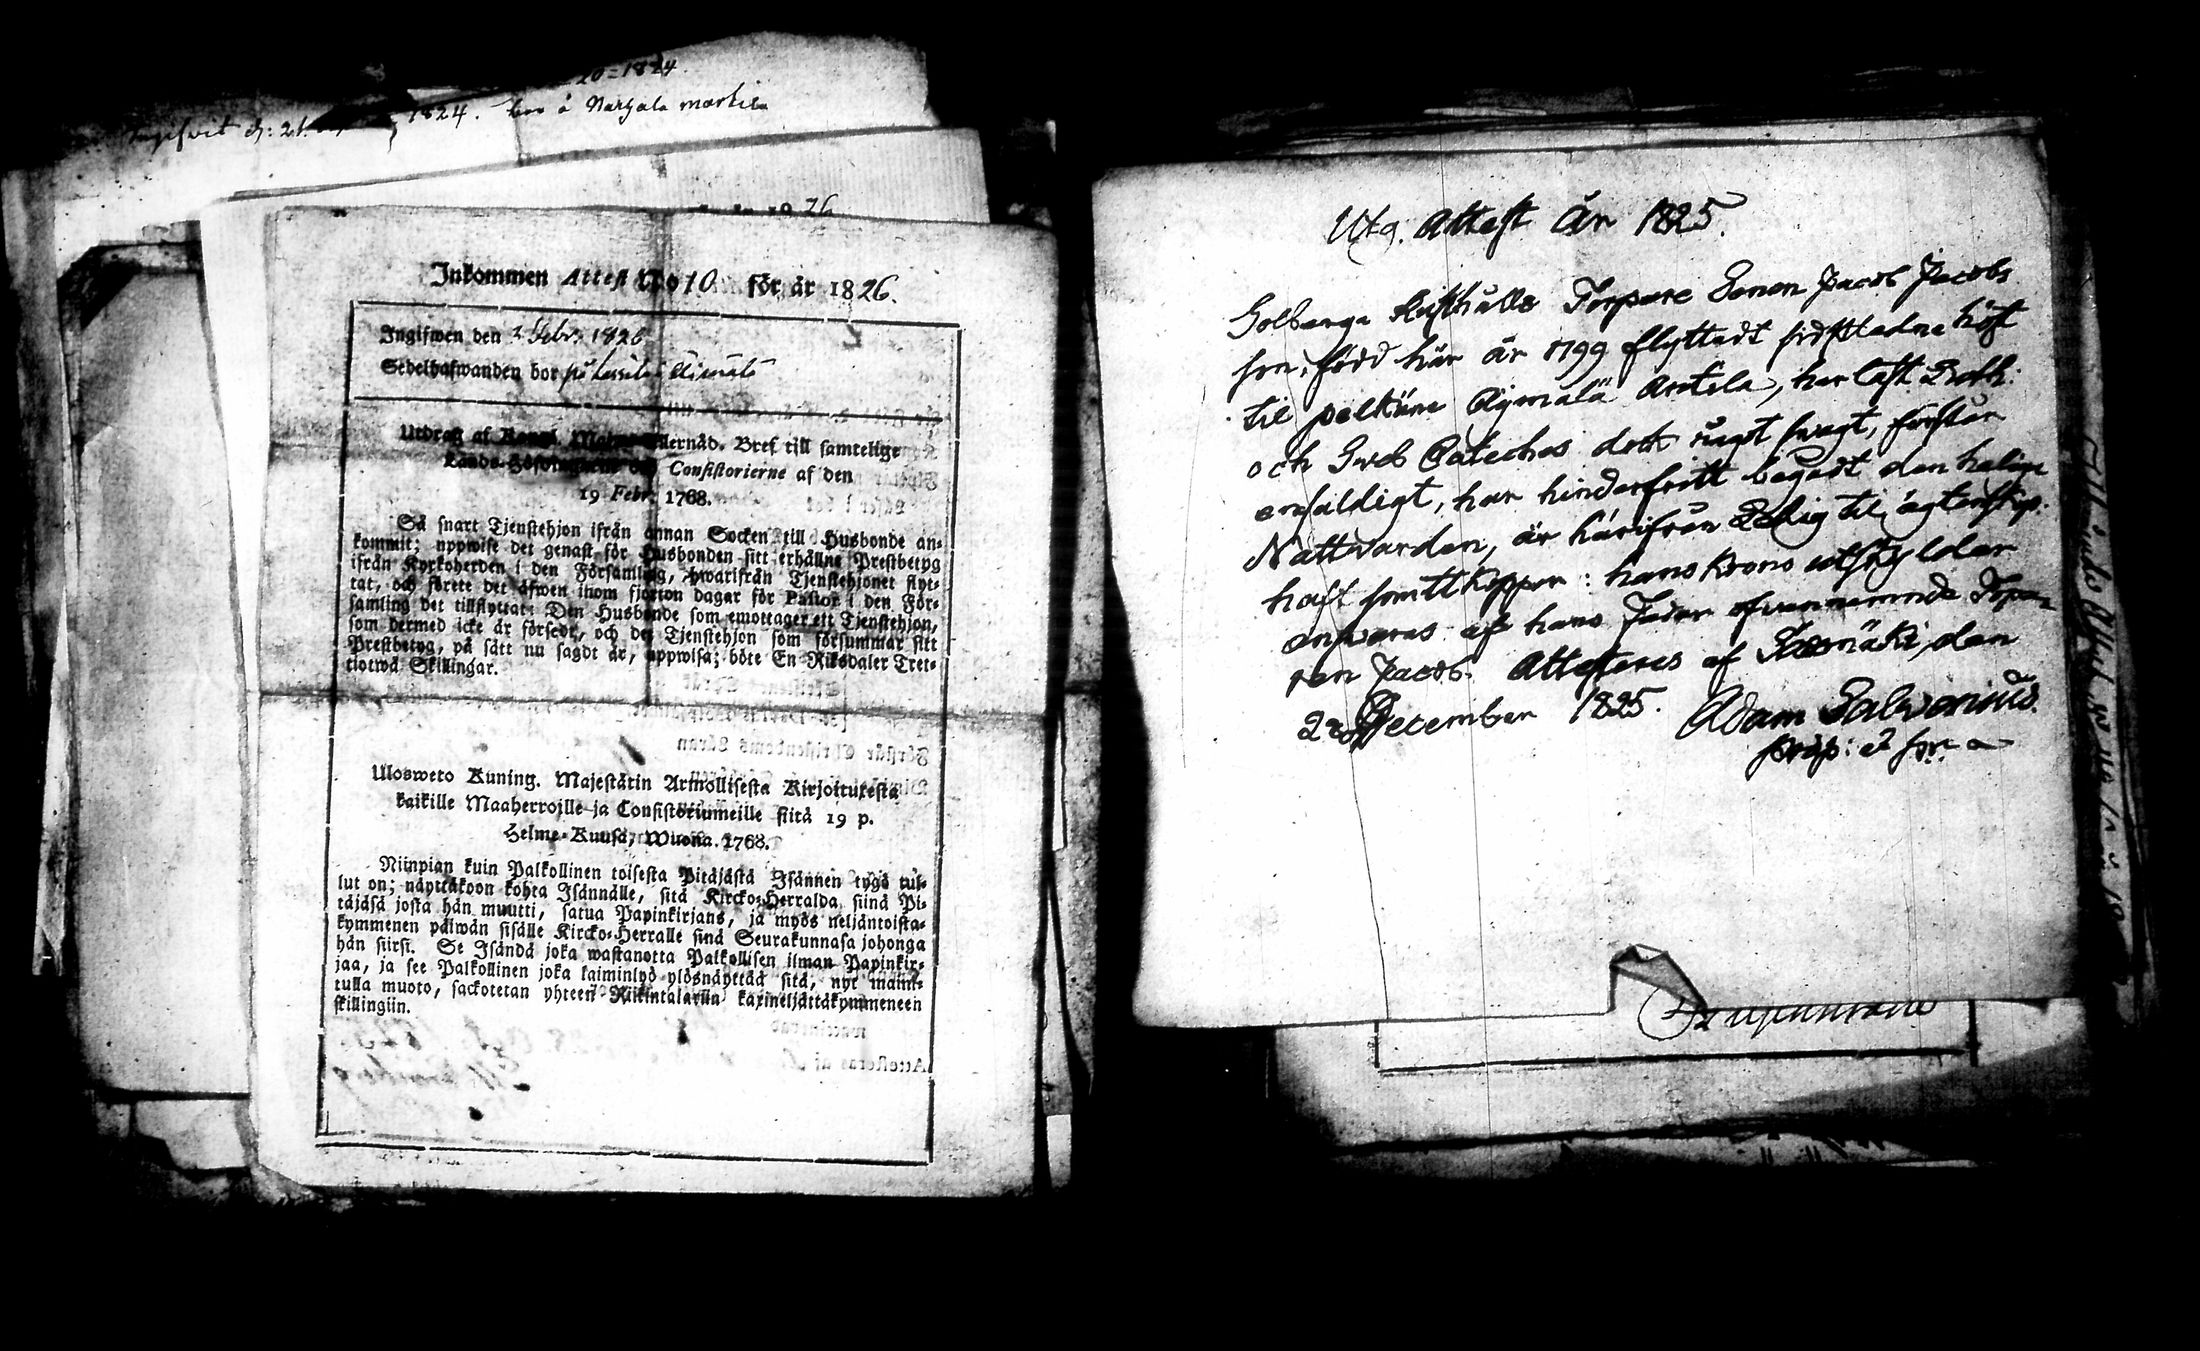 20=1824
1824. bor å
1826
Inkommen Attest No 10 för år 1826.
Ingifwen den 3 Febr. 1826
Sedelhafwanden bor på
Utdrag af Kongl. Maj:ts Nåd. Bref till samtelige
Lands-Höfdingarne och Consistorierne af den
19 Febr. 1768.
Så snart Tjenstehjon ifrån annan Socken till Husbonde an-
kommit; uppwise det genast för Husbonden sitt erhållne Prestbetyg
ifrån Kyrkoherden i den Församling, hwarifrån Tjenstehjonet flyt-
tat, och förete det äfwen inom fjorton dagar för Pastor i den För-
samling det tillflyttat: Den Husbonde som emottager ett Tjenstehjon,
som dermed icke är försedt, och det Tjenstehjon som försummar sitt
Prestbetyg, på sätt nu sagdt är, uppwisa; böte En Riksdaler Tret-
tiotwå Skillingar.
Ulosweto Kuning. Majestätin Armollisesta Kirjoituxesta
kaikille Maaherroille ja Consistoriumeille siitä 19 p.
Helme-Kuusa, Wuona. 1768.
Niinpian kuin Palkollinen toisesta Pitäjästä Isännen tygö tul-
lut on; näyttäkoon kohta Isännälle, sitä Kircko-Herralda siinä Pi-
täjäsä josta hän muutti, saatua Papinkirjans, ja myös neljäntoista-
kymmenen päiwän sisälle Kircko-Herralle sinä Seurakunnasa johonga
hän siirsi. Se Isändä joka wastanotta Palkollisen ilman Papinkir-
jaa, ja see Palkollinen joka laiminlyö ylösnäyttää sitä, nyt mainit-
tulla muoto, sackotetan yhteen Riikintalariin kaxineljättäkymmeneen
skillingiin.
Utg. Attest År 1825.
Solberga Rusthålls Torpare Sonen Jacob Jacobs
son, född här år 1799 flyttadt sidstledne höst
til pelkäne Äjmälä Anttila, har läst Bokk:
och Sweb Cateches dock något swagt, förstår
enfaldigt, har hinderfritt begådt den helige
Nattwarden, är härifrån Ledig til ägtenskap.
haft samttKoppor: hans Krono utskylder
answaras af hans Fader ofvannemnde Torpa
ren Jacob. Attesteras af den
22 December 1825. Adam Salvenius.